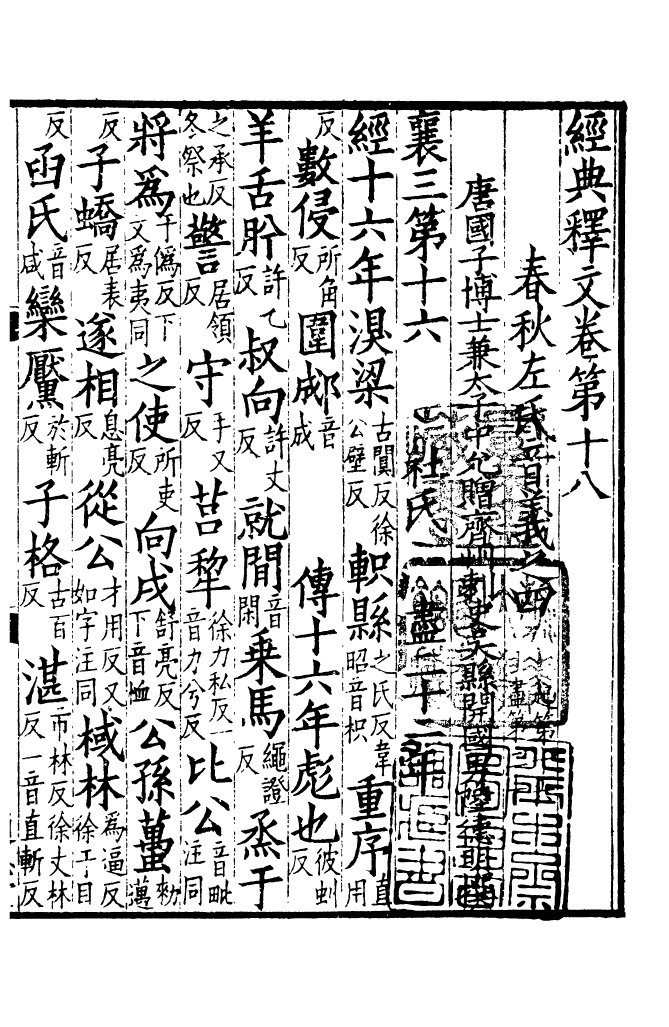 經典釋文卷第十八
春秋左氏音義之四
唐國子博士兼太子中允贈齊州刺史吳縣開國男陸德明撰
襄三第十六 杜氏 盡二十二年
經十六年湨梁古闃反徐公壁反軹縣之氏反韋昭音枳重序直用
反數侵所角反圍郕音成 傳十六年彪也彼虯反
羊舌肸許乙反叔向許丈反就閒音閑乘馬繩證反烝于
之承反冬祭也警居領反守手又反莒犂徐力私反一音力兮反比公音毗注同
將爲于僞反下文爲夷同之使所吏反向戌舒亮反下音恤公孫蠆勑邁
反子蟜居表反遂相息亮反從公才用反又如字注同棫林爲逼反徐于目
反函氏音咸欒黶於斬反子格古百反湛市林反徐丈林反一音直斬反